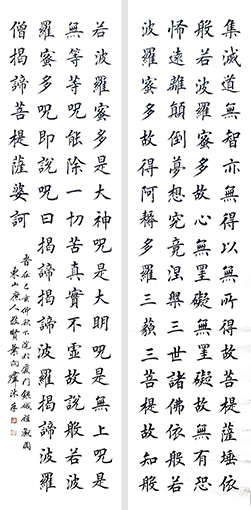 集滅道無智亦無得以無所得故菩提薩埵依
般若波羅蜜多故心無罣礙無罣礙故無有恐
怖遠離顛倒夢想究竟涅槃三世諸佛依般若
波羅蜜多故得阿耨多羅三藐三菩提故知般
若波羅蜜多是大神呪是大明呪是無上呪是
無等等呪能除一切苦真實不虛故說般若波
羅蜜多呪即說呪曰揭諦揭諦波羅揭諦波羅
僧揭諦菩提薩婆訶
己亥仲秋下浣於廈門
東山